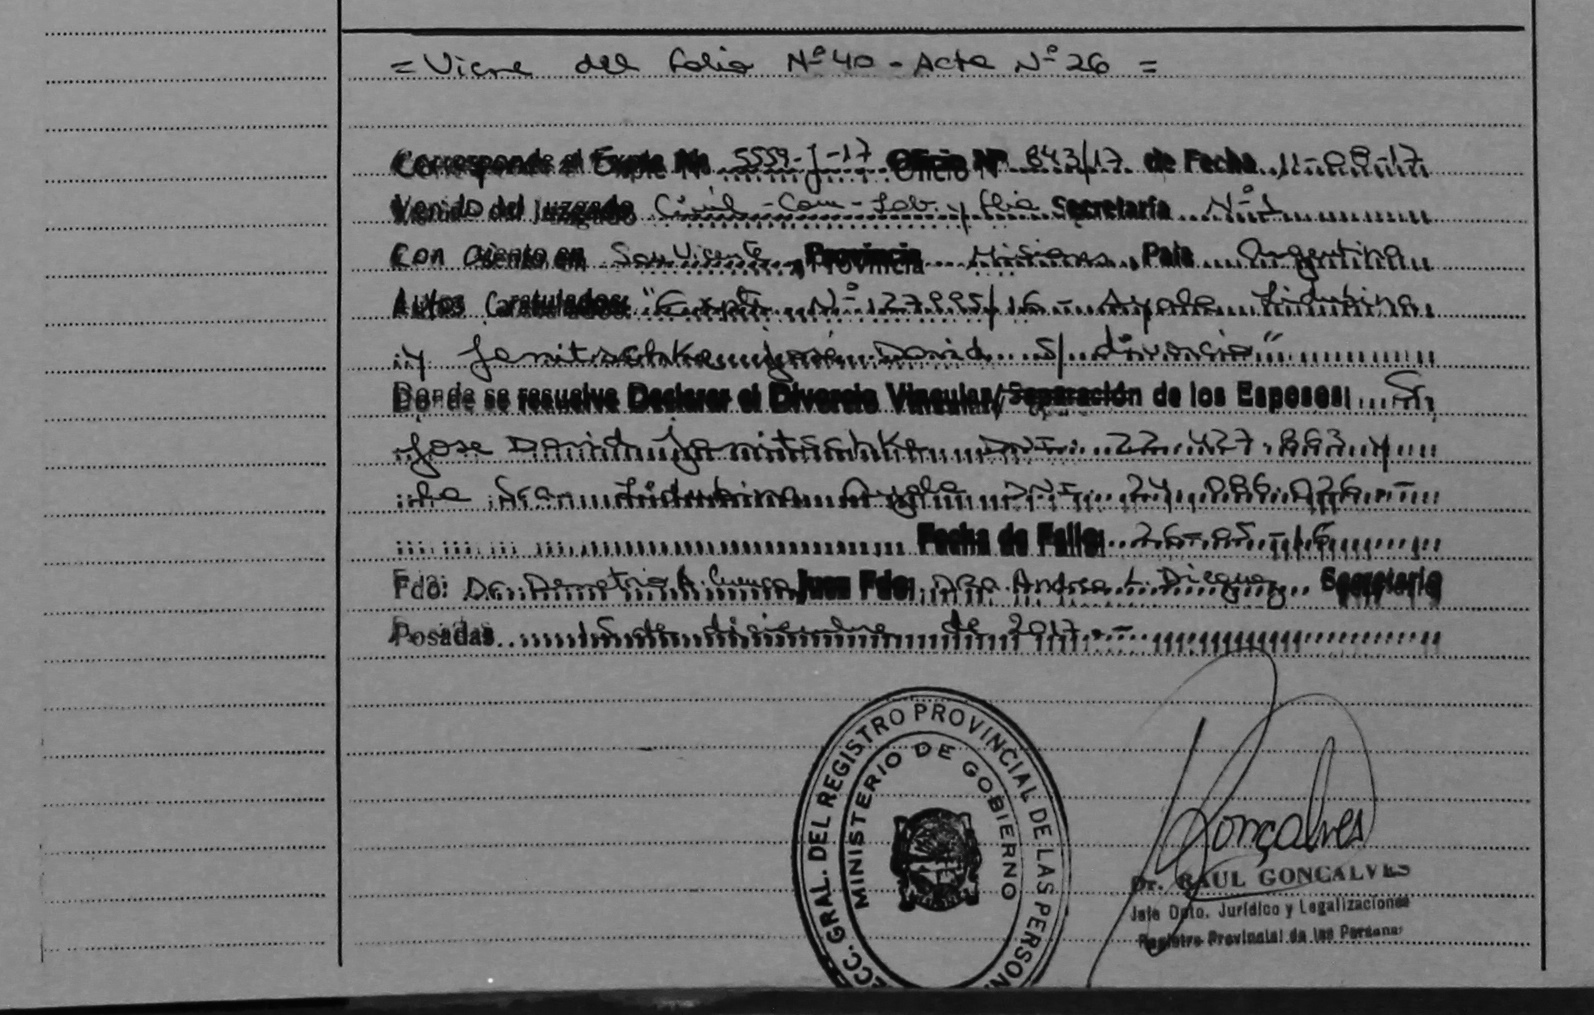 = Viene del folio Nº 40 - Acta Nº 26 =
Corresponde al Expte No 5559-J-17 Oficio Nº 843/17 de Fecha 11-09-17
Venido del Juzgado Civil - Com - Lab. y flia Secretaría Nº 1
Con asiento en San Vicente, Provincia Misiones, País Argentina
Autos Caratulados: "Expte Nº 127995/16 - Ayala Lidubina
y Janitschke José David S/ divorcio"
Donde se resuelve Declarar el Divorcio Vincular/Separación de los Esposos: Sr.
Jose David Janitschke DNI. 22.427.883 y
la Sra. Lidubina Ayala DNI. 24.086.026.-
Fecha de Fallo: 26-05-16
Fdo: Dr. Demetrio A. Cuenca Juez Fdo: Dra Andrea L. Dieguez Secretaria
Posadas, de diciembre de 2017.-
GRAL. DEL REGISTRO PROVINCIAL DE LAS
MINISTERIO DE GOBIERNO
Gonçalves
Dr. RAUL GONCALVES
Jefe Dpto. Jurídico y Legalizaciones
Registro Provincial de las Personas